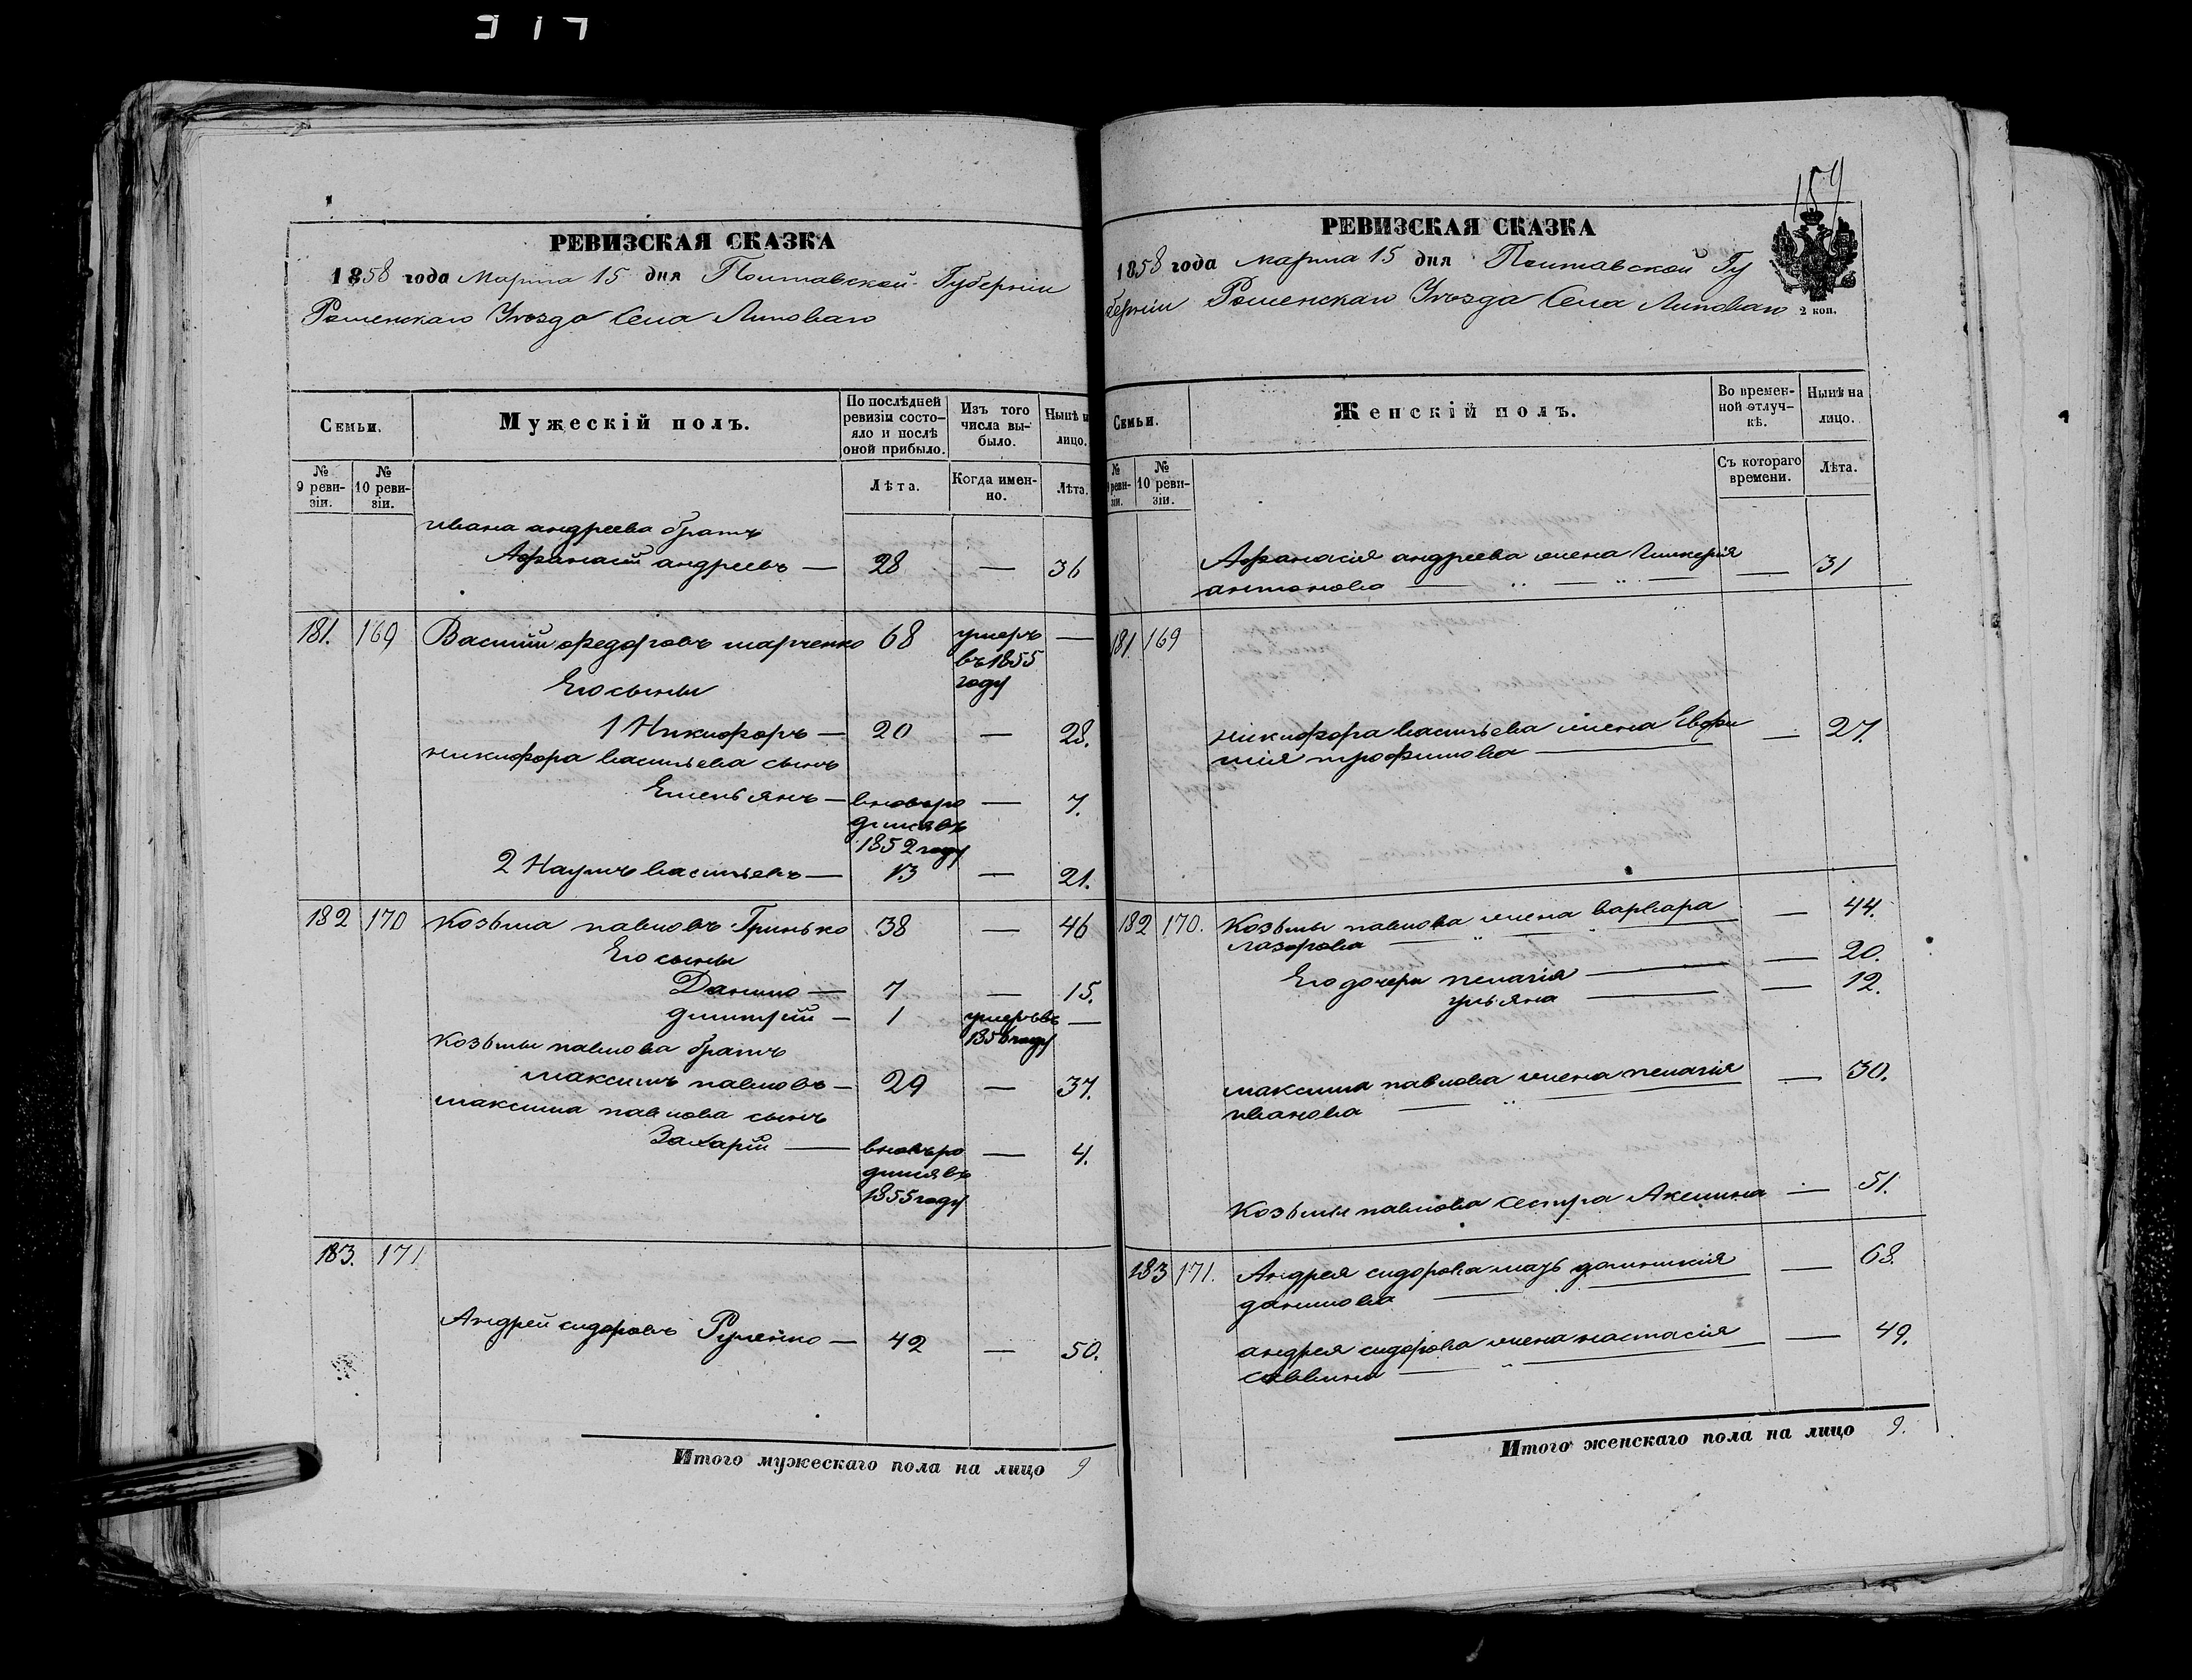 159
РЕВИЗСКАЯ СКАЗКА
1858 года Марта 15 дня Полтавской Губерніи
Роменскаго Уѣзда Села Липоваго
Семьи.
Мужескій полъ.
По послѣдней ревизіи состояло и послѣ оной прибыло.
Изъ того числа выбыло.
Нынѣ н лицо.
№ 9 ревизіи.
№ 10 ревизіи.
Лѣта.
Когда именно.
Лѣта.
ивана андреева братъ
Афанасій андреевъ — 28 — 36
181. 169 Василій федоровъ марченко 68 умеръ въ 1855 году —
Его сыны
1 Никифоръ — 20 — 28.
никифора васильева сынъ
Емельянъ — вновь родился въ 1852 году — 7.
2 Наумъ васильевъ — 13 — 21.
182 170 Козьма павловъ Гринько 38 — 46
Его сыны
Данило — 7 — 15.
димитрій — 1 умеръ въ 1856 году —
козьмы павлова братъ
максимъ павловъ — 29 — 37.
максима павлова сынъ
Захарій — вновь родился въ 1855 году — 4.
183. 171
Андрей сидоровъ — 42 — 50.
Итого мужескаго пола на лицо 9
РЕВИЗСКАЯ СКАЗКА
1858 года марта 15 дня Полтавской Гу
берніи Роменскаго Уѣзда Села Липоваго
2 коп.
Семьи.
Женскій полъ.
Во временной отлучкѣ.
Нынѣ на лицо.
№ 9 ревизіи.
№ 10 ревизіи.
Съ котораго времени.
Лѣта.
Афанасія андреева жена Гликерія
антонова — 31
181. 169
никифора васильева жена Евфи
мія трофимова — 27.
182 170. Козьмы павлова жена варвара
лазорова — 44.
Его дочери пелагія — 20.
ульяна — 12.
максима павлова жена пелагія
иванова — 30.
Козьмы павлова сестра Акелина — 51.
183 171. Андрея сидорова мать домникія
данилова — 68.
андрея сидорова жена настасія
саввина — 49.
Итого женскаго пола на лицо 9.